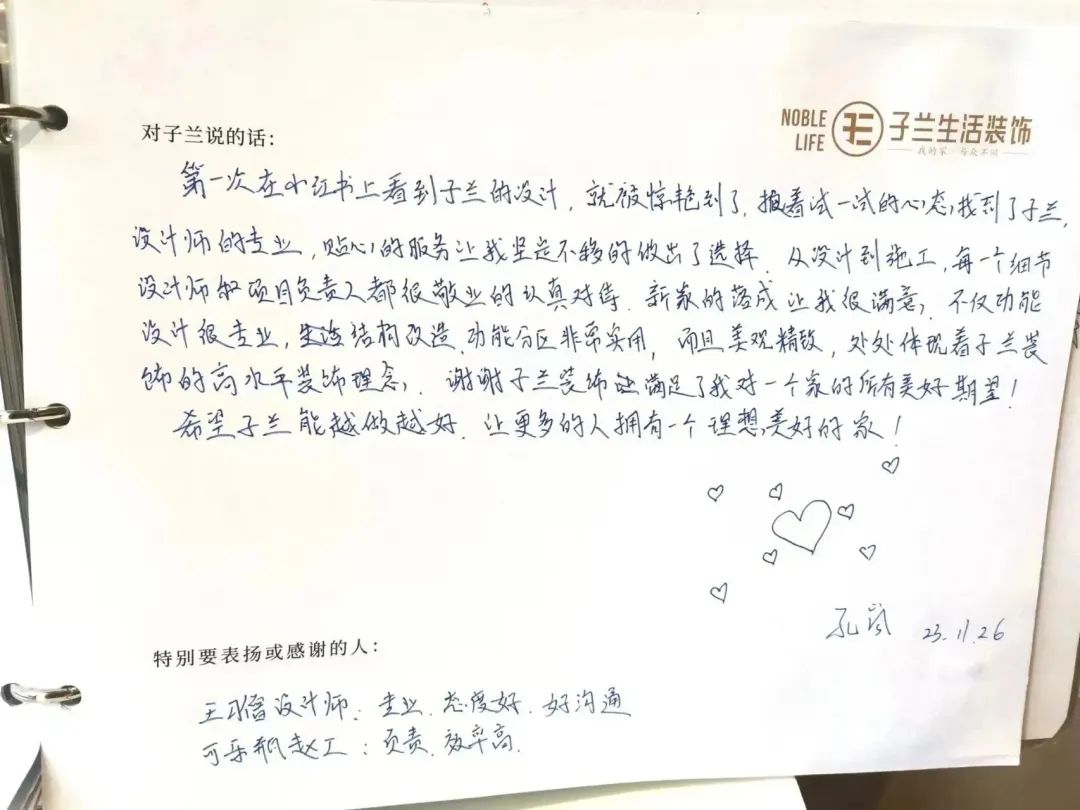 NOBLE
LIFE
子兰生活装饰
我的家·与众不同
对子兰说的话：
第一次在小红书上看到子兰的设计，就被惊艳到了，抱着试一试的心态，找到了子兰，
设计师的专业，贴心的服务让我坚定不移的做出了选择。从设计到施工，每一个细节
设计师和项目负责人都很敬业的认真对待。新家的落成让我很满意，不仅功能
设计很专业，结构改造、功能分区非常实用，而且美观精致，处处体现着子兰装
饰的高水平装饰理念，谢谢子兰装饰让满足了我对一个家的所有美好期望！
希望子兰能越做越好，让更多的人拥有一个理想，美好的家！
孔 23.11.26
特别要表扬或感谢的人：
王 设计师：专业、态度好、好沟通
可乐瓶赵工：负责、效率高